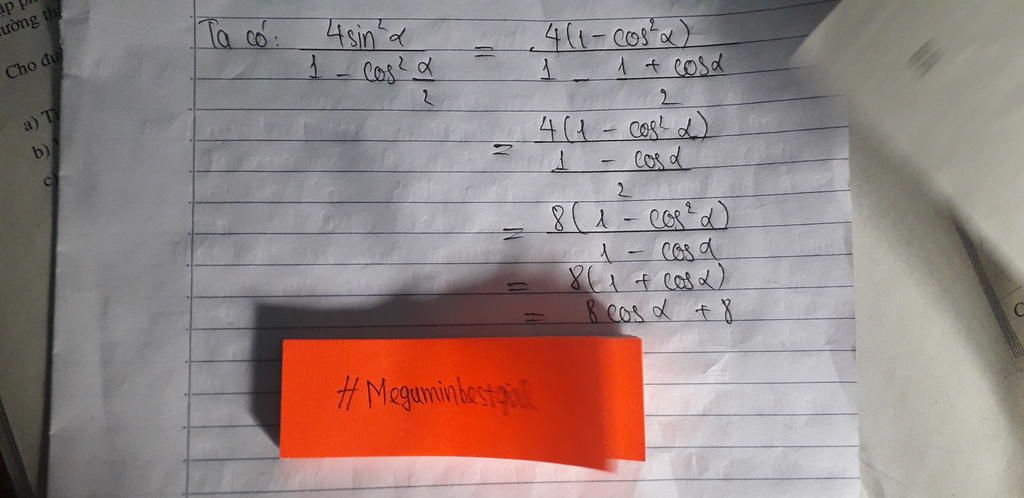 ường th
Cho đu
a) T
b)
c)
Ta có: 4sin²α / (1 - cos² α/2) = 4(1 - cos²α) / (1 - (1 + cosα)/2)
= 4(1 - cos²α) / ((1 - cosα)/2)
= 8(1 - cos²α) / (1 - cosα)
= 8(1 + cosα)
= 8cosα + 8
#Meguminbestgirl